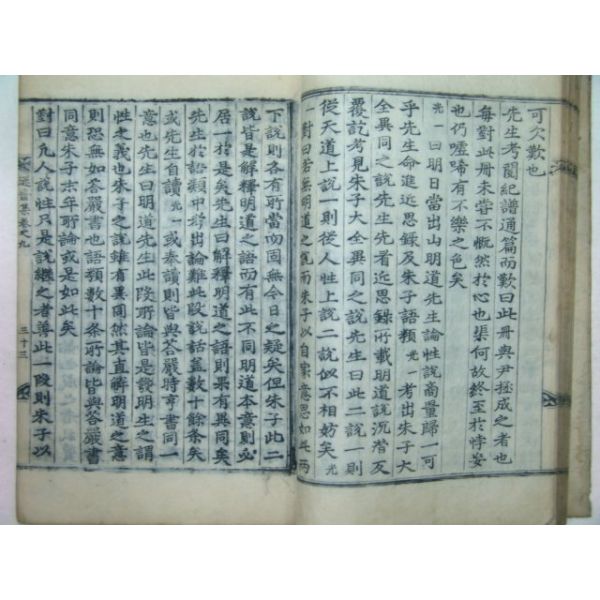 可欠歎也
先生考閱紀譜通篇而歎曰此冊與尹拯成之者也
每對此冊未嘗不慨然於心也渠何故終至於悖妄
也仍噓唏有不樂之色矣
光一曰明日當出山明道先生論性說商量歸一可
乎先生命進近思錄及朱子語類光一考出朱子大
全異同之說先生先看近思錄所載明道說沉潛反
覆訖考見朱子大全異同之說先生曰此二說一則
從天道上說一則從人性上說二說似不相妨矣光
一對曰若無明道之說而朱子以自家意思如此兩
下說則各有所當而固無今日之疑矣但朱子此二
說皆是解釋明道之語而有此不同明道本意則必
居一於是矣先生曰解釋明道之語則果有異同矣
先生於語類中將出論難此段說話盖數十餘條矣
或先生自讀光一或泰讀則皆與答嚴時亨書同一
意也先生曰明道先生此段所論皆是發明生之謂
性之義也朱子之說雖有異同然其直解明道之意
則恐無如答嚴書也語類數十條所論皆與答嚴書
同意朱子末年所論或是如此矣
對曰凡人說性只是說繼之者善此一段則朱子以
集卷之九
三十三